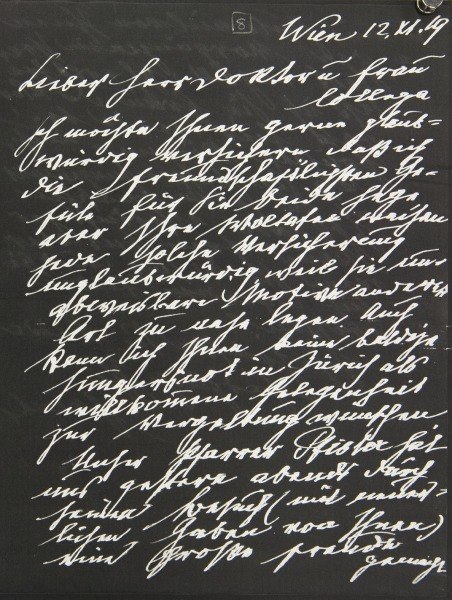 8
Wien 12.XI.19
Lieber Herr Doktor u Frau
Collega
Ich möchte Ihnen gerne glaub=
würdig versichern daß ich
die freundschaftlichsten Ge=
fühle für Sie beide hege
aber Ihre Woltaten machen
jede solche Versicherung
unglaubwürdig weil sie un=
abweisbare Motive anderer
Art zu nahe legen. Auch
kann ich Ihnen keine baldige
Hungersnot in Zürich als
willkommene Gelegenheit
zur Vergeltung wünschen
Unser Pfarrer Pfister hat
uns gestern abends durch
seinen Besuch (mit
lichen Gaben von Ihnen)
eine große Freude
gemacht